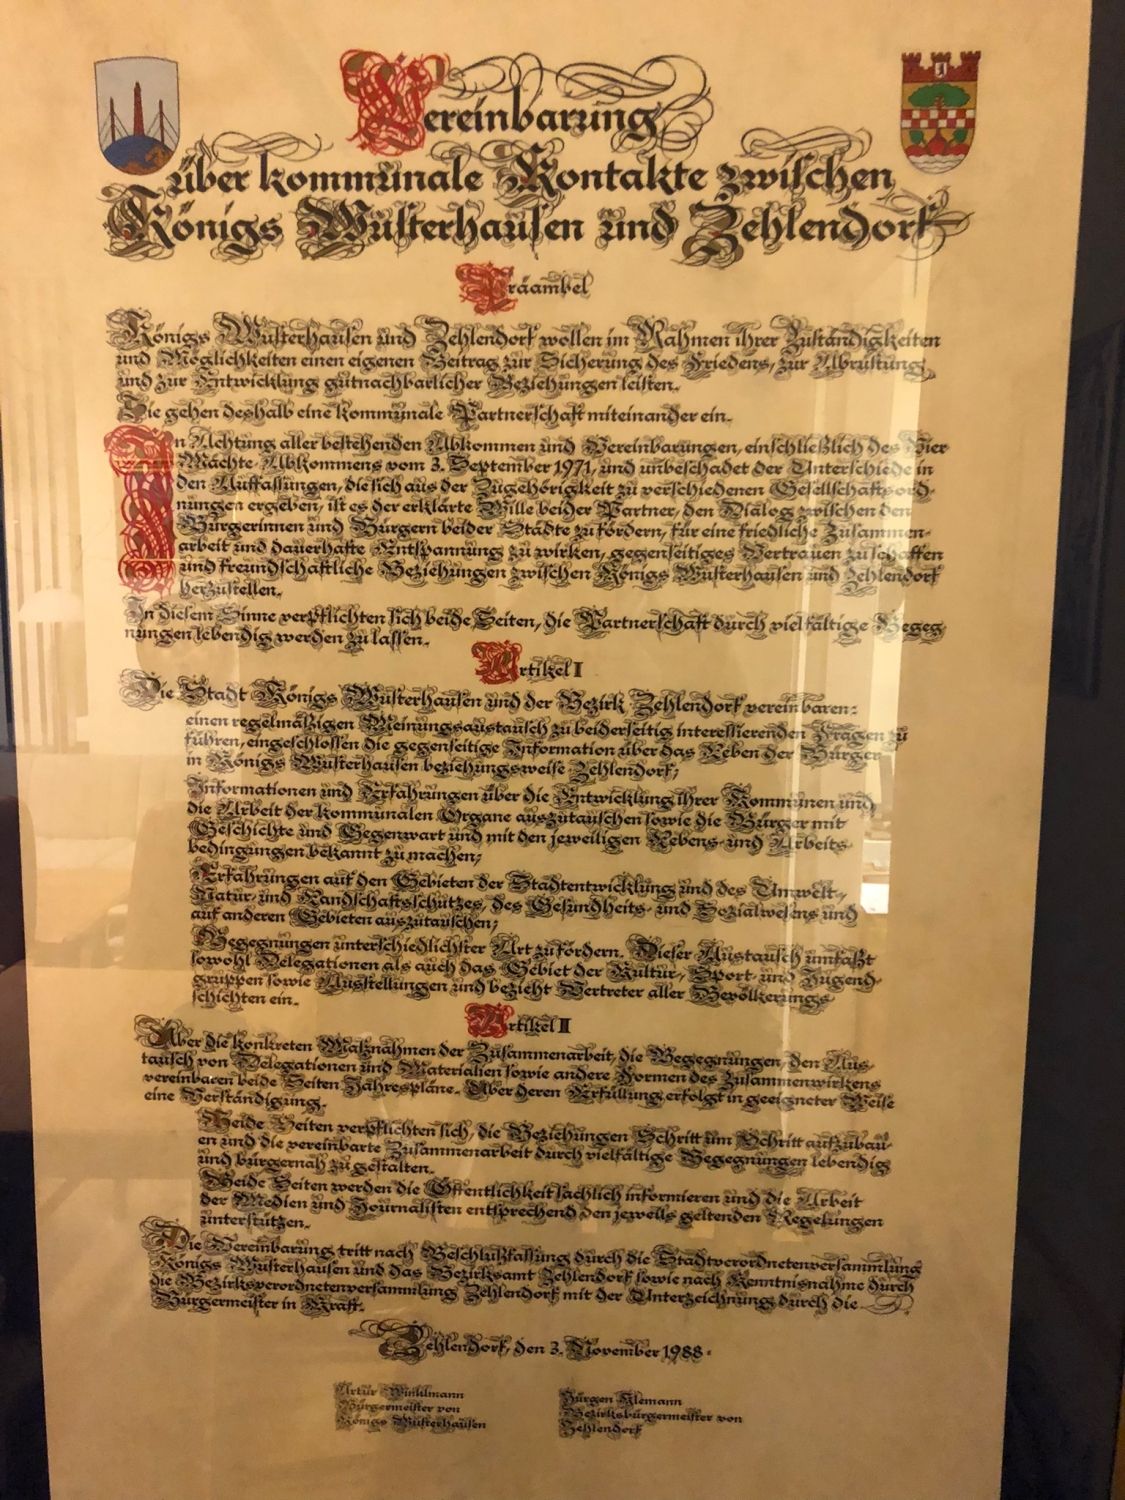 Vereinbarung
über kommunale Kontakte zwischen
Königs Wusterhausen und Zehlendorf
Präambel
Königs Wusterhausen und Zehlendorf wollen im Rahmen ihrer Zuständigkeiten
und Möglichkeiten einen eigenen Beitrag zur Sicherung des Friedens, zur Abrüstung
und zur Entwicklung gutnachbarlicher Beziehungen leisten.
Sie gehen deshalb eine kommunale Partnerschaft miteinander ein.
In Achtung aller bestehenden Abkommen und Vereinbarungen, einschließlich des Vier
Mächte-Abkommens vom 3. September 1971, und unbeschadet der Unterschiede in
den Auffassungen, die sich aus der Zugehörigkeit zu verschiedenen Gesellschaftsord-
nungen ergeben, ist es der erklärte Wille beider Partner, den Dialog zwischen den
Bürgerinnen und Bürgern beider Städte zu fördern, für eine friedliche Zusammen-
arbeit und dauerhafte Entspannung zu wirken, gegenseitiges Vertrauen zu schaffen
und freundschaftliche Beziehungen zwischen Königs Wusterhausen und Zehlendorf
herzustellen.
In diesem Sinne verpflichten sich beide Seiten, die Partnerschaft durch vielfältige Begeg
nungen lebendig werden zu lassen.
Artikel I
Die Stadt Königs Wusterhausen und der Bezirk Zehlendorf vereinbaren:
einen regelmäßigen Meinungsaustausch zu beiderseitig interessierenden Fragen zu
führen, eingeschlossen die gegenseitige Information über das Leben der Bürger
in Königs Wusterhausen beziehungsweise Zehlendorf;
Informationen und Erfahrungen über die Entwicklung ihrer Kommunen und
die Arbeit der kommunalen Organe auszutauschen sowie die Bürger mit
Geschichte und Gegenwart und mit den jeweiligen Lebens- und Arbeits-
bedingungen bekannt zu machen;
Erfahrungen auf den Gebieten der Stadtentwicklung und des Umwelt-,
Natur- und Landschaftsschutzes, des Gesundheits- und Sozialwesens und
auf anderen Gebieten auszutauschen;
Begegnungen unterschiedlichster Art zu fördern. Dieser Austausch umfaßt
sowohl Delegationen als auch das Gebiet der Kultur-, Sport- und Jugend-
gruppen sowie Ausstellungen und bezieht Vertreter aller Bevölkerungs-
schichten ein.
Artikel II
Über die konkreten Maßnahmen der Zusammenarbeit, die Begegnungen, den Aus-
tausch von Delegationen und Materialien sowie andere Formen des Zusammenwirkens
vereinbaren beide Seiten Jahrespläne. Über deren Erfüllung erfolgt in geeigneter Weise
eine Verständigung.
Beide Seiten verpflichten sich, die Beziehungen Schritt um Schritt aufzubau-
en und die vereinbarte Zusammenarbeit durch vielfältige Begegnungen lebendig
und bürgernah zu gestalten.
Beide Seiten werden die Öffentlichkeit sachlich informieren und die Arbeit
der Medien und Journalisten entsprechend den jeweils geltenden Regelungen
unterstützen.
Die Vereinbarung tritt nach Beschlußfassung durch die Stadtverordnetenversammlung
Königs Wusterhausen und das Bezirksamt Zehlendorf sowie nach Kenntnisnahme durch
die Bezirksverordnetenversammlung Zehlendorf mit der Unterzeichnung durch die
Bürgermeister in Kraft.
Zehlendorf, den 3. November 1988.
Artur Winklmann
Bürgermeister von
Königs Wusterhausen
Jürgen Klemann
Bezirksbürgermeister von
Zehlendorf